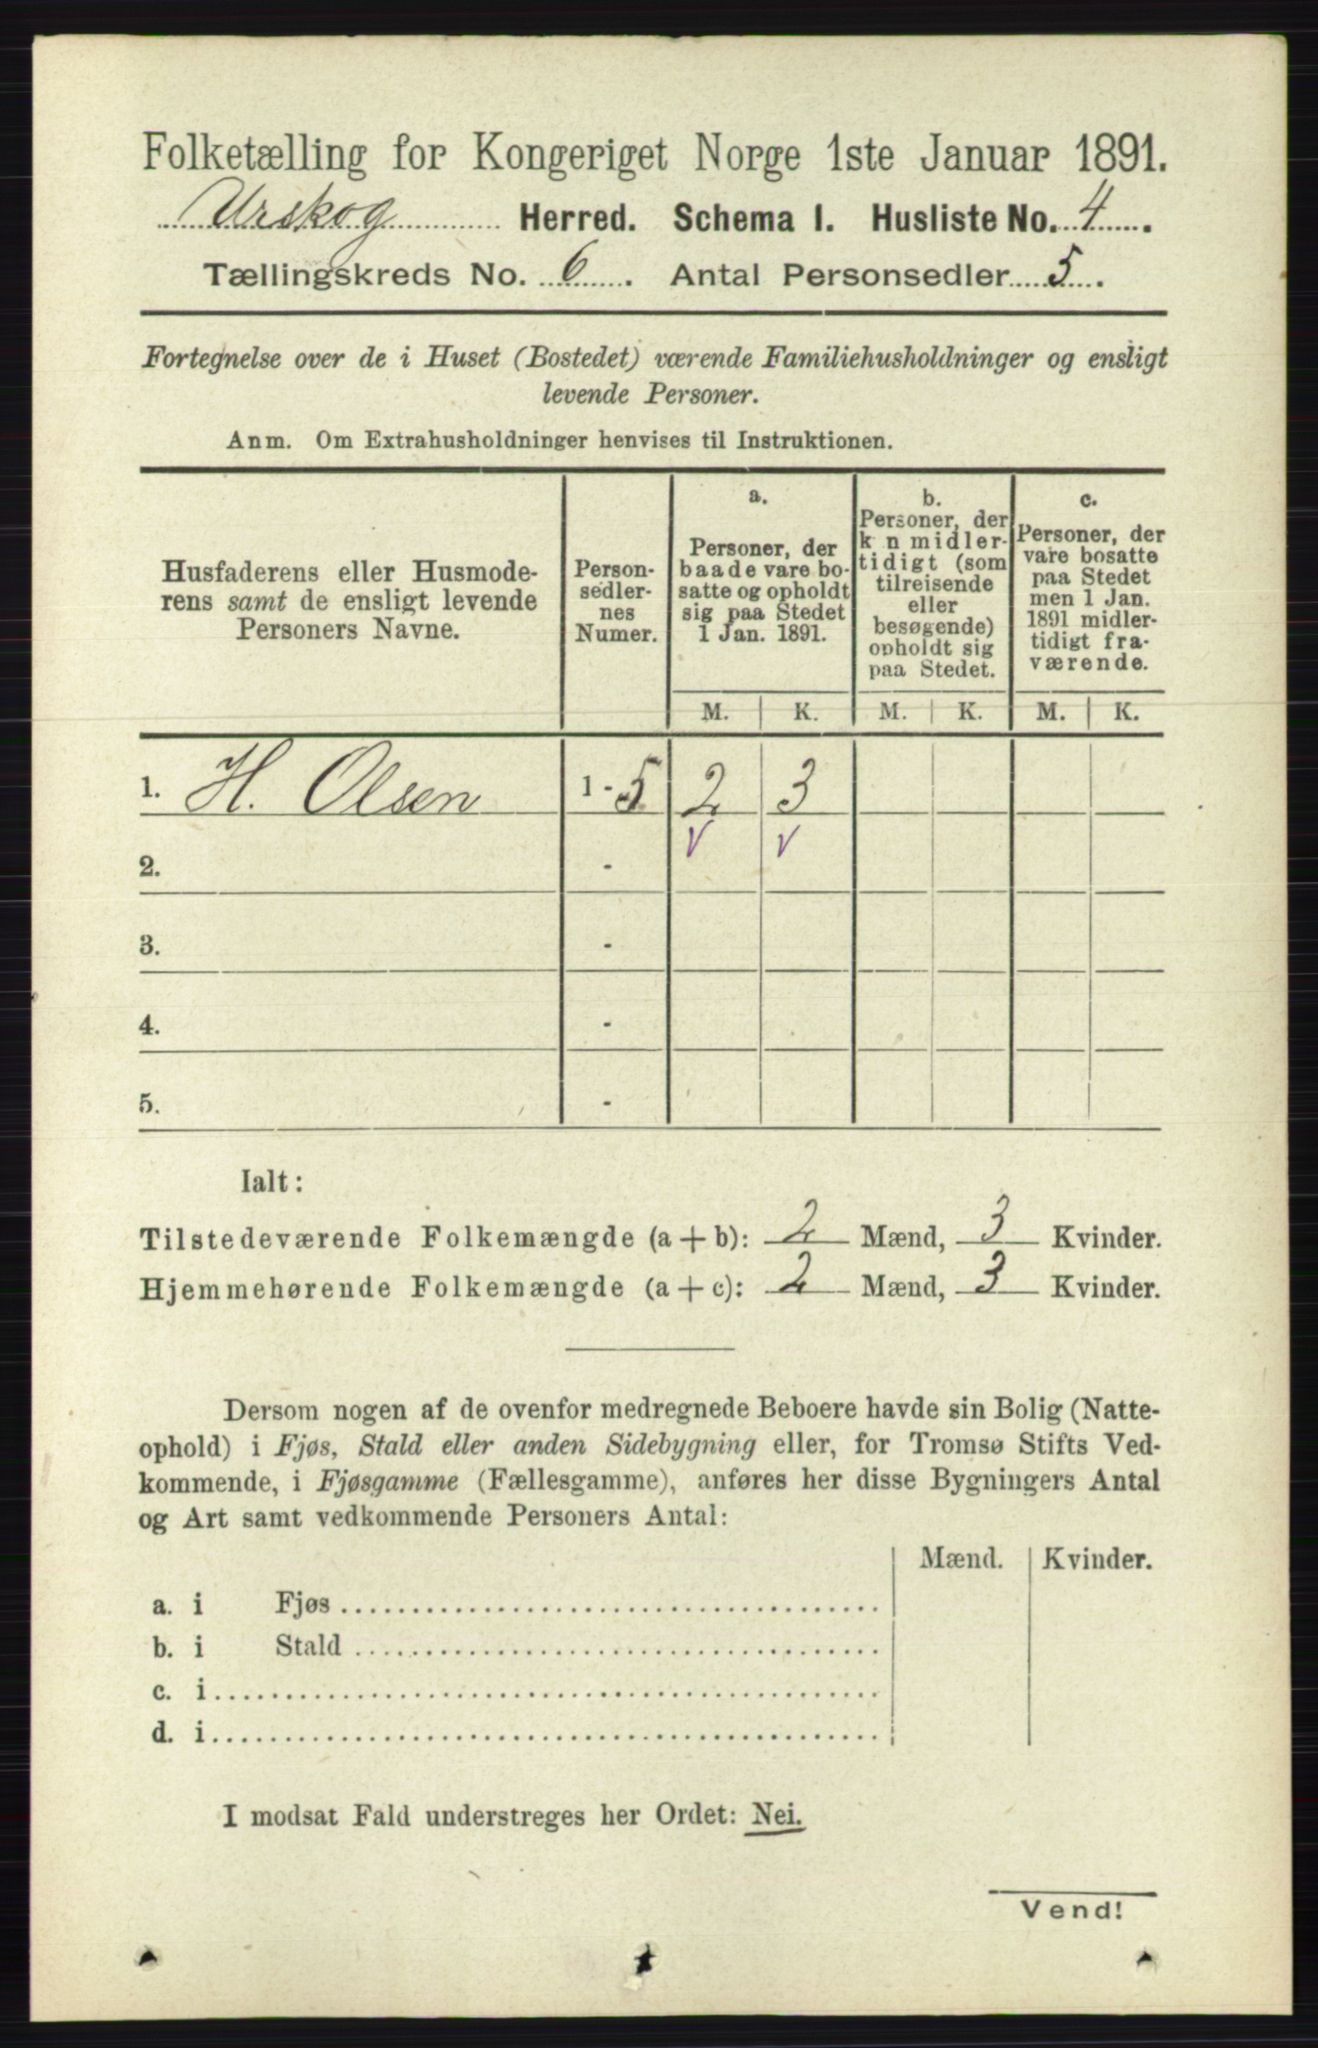 Folketælling for Kongeriget Norge 1ste Januar 1891.
Urskog Herred. Schema I. Husliste No. 4.
Tællingskreds No. 6. Antal Personsedler 5.
Fortegnelse over de i Huset (Bostedet) værende Familiehusholdninger og ensligt
levende Personer.
Anm. Om Extrahusholdninger henvises til Instruktionen.
Husfaderens eller Husmode-
rens samt de ensligt levende
Personers Navne.
Person-
sedler-
nes
Numer.
a.
Personer, der
baade vare bo-
satte og opholdt
sig paa Stedet
1 Jan. 1891.
b.
Personer, der
k n midler-
tidigt (som
tilreisende
eller
besøgende)
opholdt sig
paa Stedet.
c.
Personer, der
vare bosatte
paa Stedet
men 1 Jan.
1891 midler-
tidigt fra-
værende.
M. K. M. K. M. K.
1. H. Olsen 1-5 2 3
2. - V V
3. -
4. -
5. -
Ialt:
Tilstedeværende Folkemængde (a + b): 2 Mænd, 3 Kvinder.
Hjemmehørende Folkemængde (a + c): 2 Mænd, 3 Kvinder.
Dersom nogen af de ovenfor medregnede Beboere havde sin Bolig (Natte-
ophold) i Fjøs, Stald eller anden Sidebygning eller, for Tromsø Stifts Ved-
kommende, i Fjøsgamme (Fællesgamme), anføres her disse Bygningers Antal
og Art samt vedkommende Personers Antal:
Mænd. Kvinder.
a. i Fjøs
b. i Stald
c. i
d. i
I modsat Fald understreges her Ordet: Nei.
Vend!